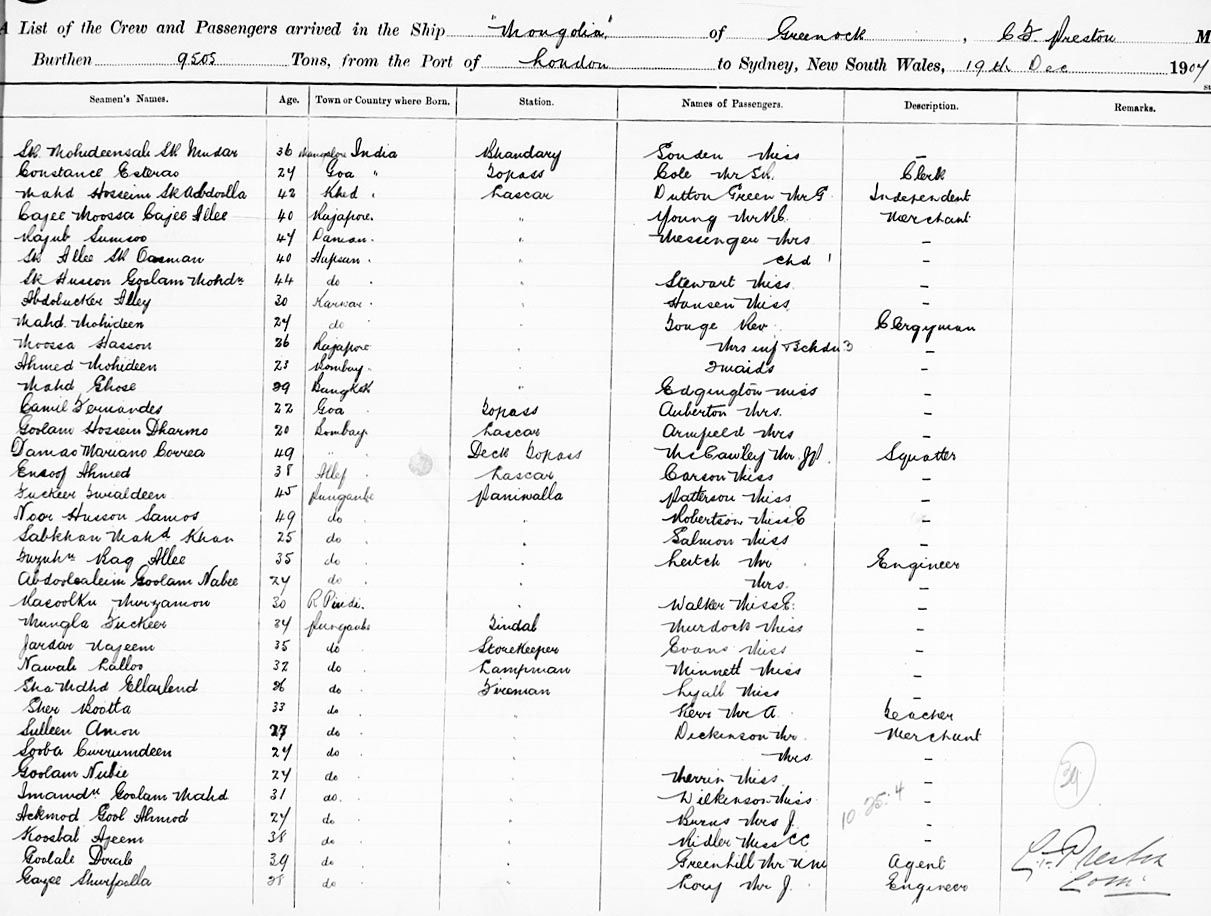 A List of the Crew and Passengers arrived in the Ship "Mongolia" of Greenock, C F Preston M
Burthen 9505 Tons, from the Port of London to Sydney, New South Wales, 19th Dec 1904
Seamen's Names. Age. Town or Country where Born. Station. Names of Passengers. Description. Remarks.
Sk. Mohideensab Sk Mudar 36 Mangalore India Bhandary Souden Miss –
Constance Esterao 24 Goa " Topass Cole Mr Clerk
Mahd Hosseim Sk Abdoolla 42 Khed Lascar Dutton Green Mr G Independent
Cajee Moossa Cajee Allee 40 Rajapore. " Young Mr Merchant
Rajub Sumsoo 47 Daman. Messenger Mrs –
Sk Allee Sk Oosman 40 Chd 1 –
Sk Husson Goolam Mohdn 44 do Stewart Miss –
Abdolucker Alley 30 Karwar Hansen Miss –
Mahd. Mohideen 24 do Gouge Rev Clergyman
Moossa Hasson 36 Rajapore Mrs inf & 3 –
Ahmed Mohideen 23 Bombay. 2 maids –
Mahd Ghose 29 Bangkok " Edgington Miss –
Camil Fernandes 22 Goa Topass Auberton Mrs. –
Goolam Hossein Dharmo 20 Bombay Lascar Armfield Mrs –
Damao Mariano Correa 49 " Deck Topass McCawley Mr. Squatter
Ensoof Ahmed 38 Allep Lascar Carson Miss –
Fuckeer 45 Pungaube Paniwalla Patterson Miss –
Noor Husson Samos 49 do Robertson Miss E –
Sabkhan Mahd Khan 25 do Salmon Miss –
Rag Allee 35 do Leitch Mr Engineer
Abdoolsaleim Goolam Nabee 24 do Mrs. –
Rasoolku Murzamon 30 R Pindi. Walker Miss E. –
Mungla Fuckeer 34 Pungaube Tindal Murdock Miss –
Jardar Najeem 35 do Storekeeper Evans Miss –
Nawab Lallos 32 do Lampman Minnett Miss –
Sha Mdhd Ellarlend 26 do Fireman Lyall Miss –
Sher Bootta 33 do Kerr Mr A. Teacher
Sulleen Amon 27 do Dickinson Mr. Merchant
Sooba Currumdeen 24 do Mrs –
Goolam Nubie 24 do Merrin Miss –
Imamdn Goolam Mahd 31 do. Wilkinson Miss –
Ackmod Gool Ahmod 24 do Burns Mrs J. –
10.25.4
Koosbal Azeem 38 do Ridler Miss CC –
Goolale Dorab 39 do Greenhill Mr Agent
C F Preston
Com.
Gazee Shurfoolla 28 do Lory Mr J. Engineer